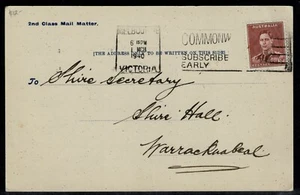 2nd Class Mail Matter.
MELBOURNE
6 PM
1940
VICTORIA
COMMONW
SUBSCRIBE
EARLY
AUSTRALIA
[THE ADDRESS ONLY TO BE WRITTEN ON THIS SIDE]
To Shire Secretary
Shire Hall
Warracknabeal